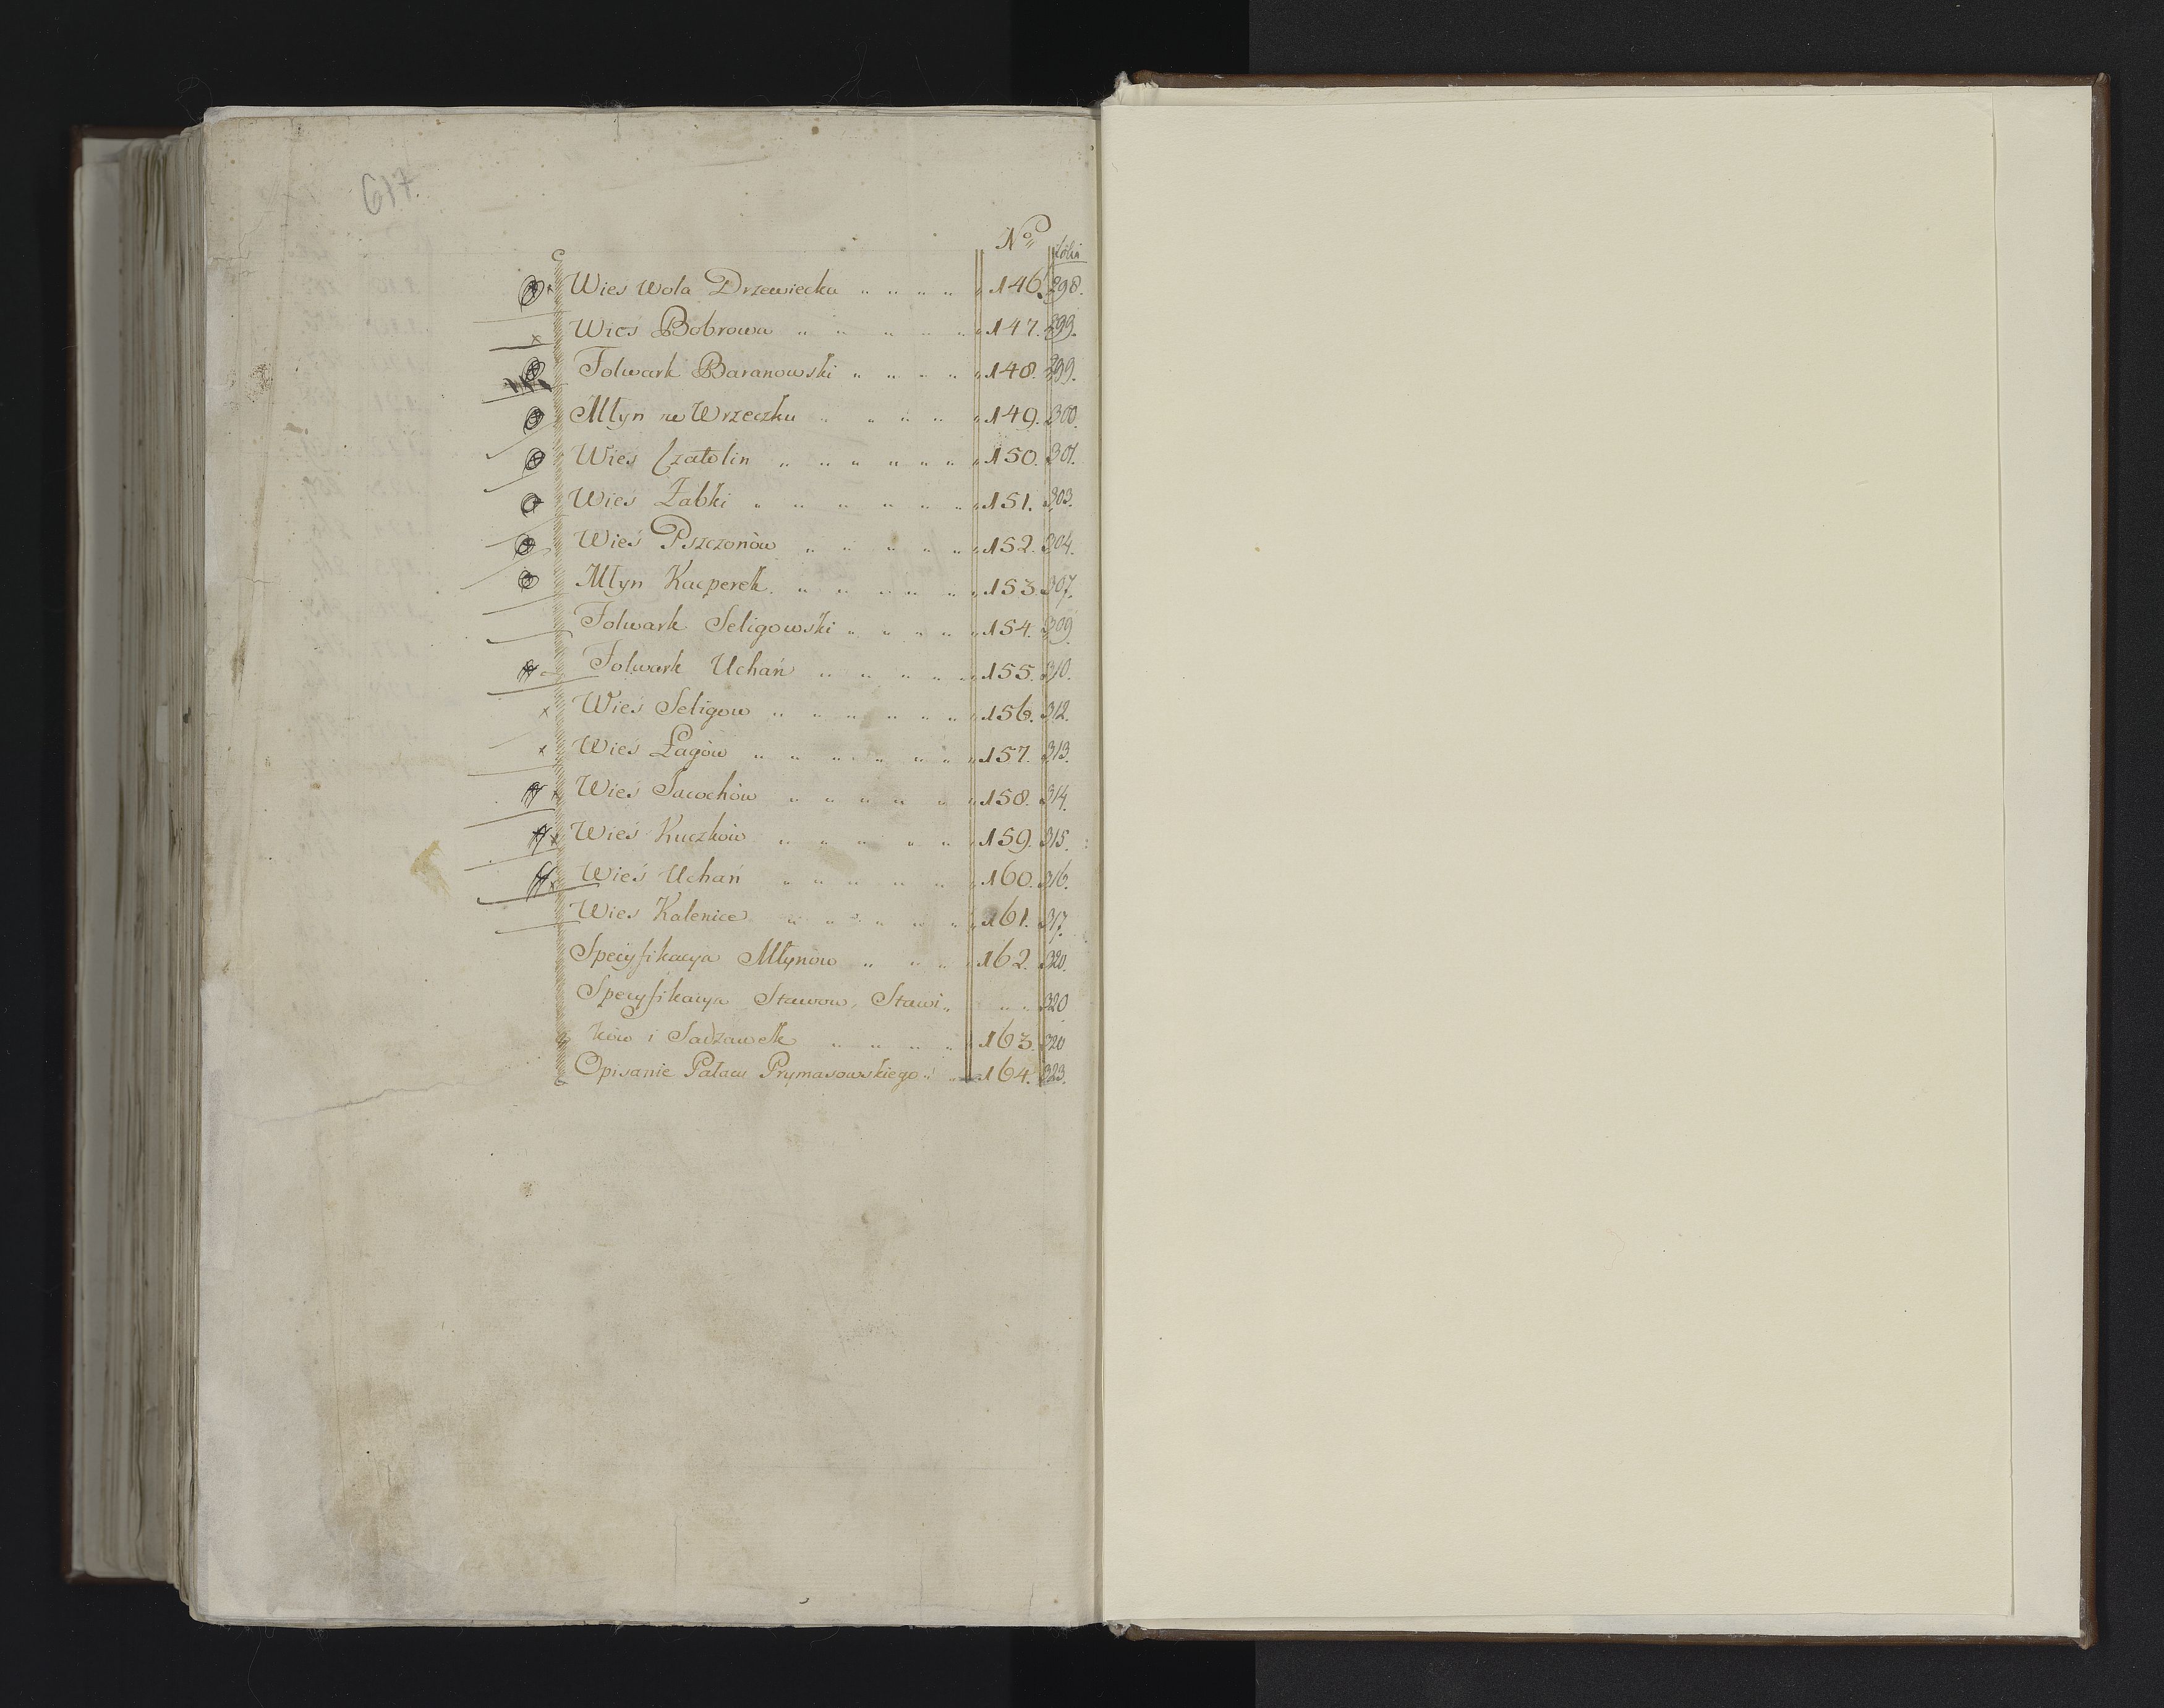 617.
No folia
Wieś Wola Drzewiecka 146. 298.
Wieś Bobrowa 147. 299.
Folwark Baranowski 148. 299.
Młyn we Wrzeczku 149. 300.
Wieś Czatolin 150. 301.
Wieś Łabki 151. 303.
Wieś Pszczonów 152. 304.
Młyn Kacperek 153. 307.
Folwark Seligowski 154. 309
Folwark Uchań 155. 310.
Wieś Seligow 156. 312.
Wieś Łagów 157. 313.
Wieś 158. 314.
Wieś Kuczków 159. 315.
Wieś Uchań 160. 316.
Wies Kalenice 161. 317.
Specyfikacya Młynow 162. 320.
Specyfikacya Stawow, Stawi 320
ków i Sadzawek 163. 320
Opisanie Pałacu Prymasowskiego 164. 323.